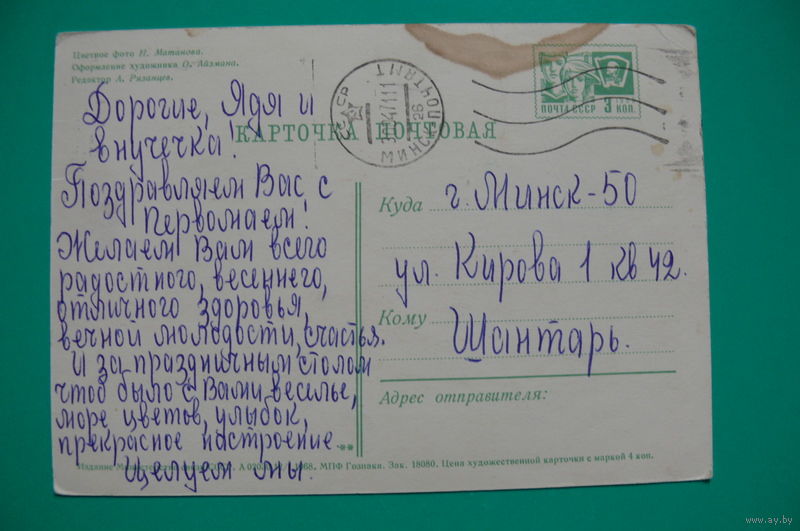 Цветное фото Н. Матанова.
Оформление художника О. Айзмана.
Редактор А. Рязанцев.
ПОЧТА СССР 3 КОП.
МИНСК ПОЧТАМТ
КАРТОЧКА ПОЧТОВАЯ
Дорогие, Ядя и
внучечка!
Поздравляем Вас, с
Первомаем!
Желаем Вам всего
радостного, весеннего,
отличного здоровья,
вечной молодости, счастья.
И за праздничным столом
чтоб было с Вами, веселье,
море цветов, улыбок,
прекрасное настроение
Целуем мы.
Куда г. Минск-50
ул. Кирова 1 кв 42.
Кому Шантарь.
Адрес отправителя:
Издание Министерства связи 1968. МПФ Гознака. Зак. 18080. Цена художественной карточки с маркой 4 коп.
www.ay.by